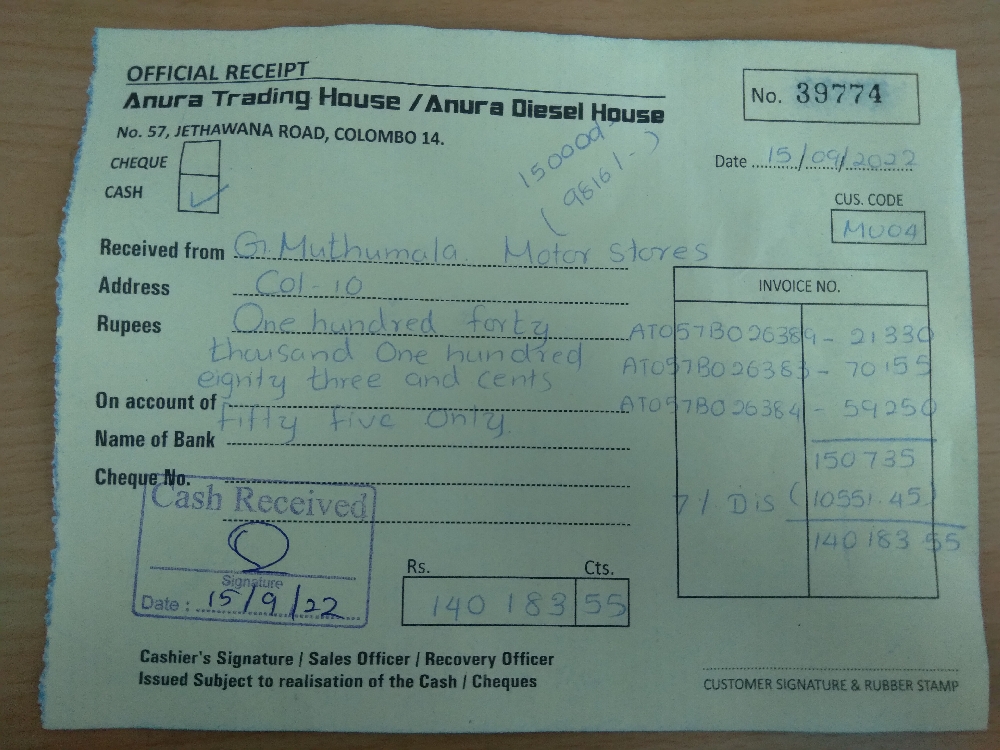 OFFICIAL RECEIPT
Anura Trading House / Anura Diesel House
No. 57, JETHAWANA ROAD, COLOMBO 14.
No. 39774
CHEQUE
CASH ✓
150000/-
(9816/-)
Date 15/09/2022
CUS. CODE
MU04
Received from G. Muthumala Motor Stores
Address Col-10
INVOICE NO.
Rupees One hundred forty
thousand One hundred
eighty three and cents
On account of fifty five Only.
AT057B026389 - 21330
AT057B026383 - 70155
AT057B026384 - 59250
150735
7% Dis (10551.45)
140183 55
Name of Bank
Cheque No.
Cash Received
Signature
Date : 15/9/22
Rs. Cts.
140 183 55
Cashier's Signature / Sales Officer / Recovery Officer
Issued Subject to realisation of the Cash / Cheques
CUSTOMER SIGNATURE & RUBBER STAMP